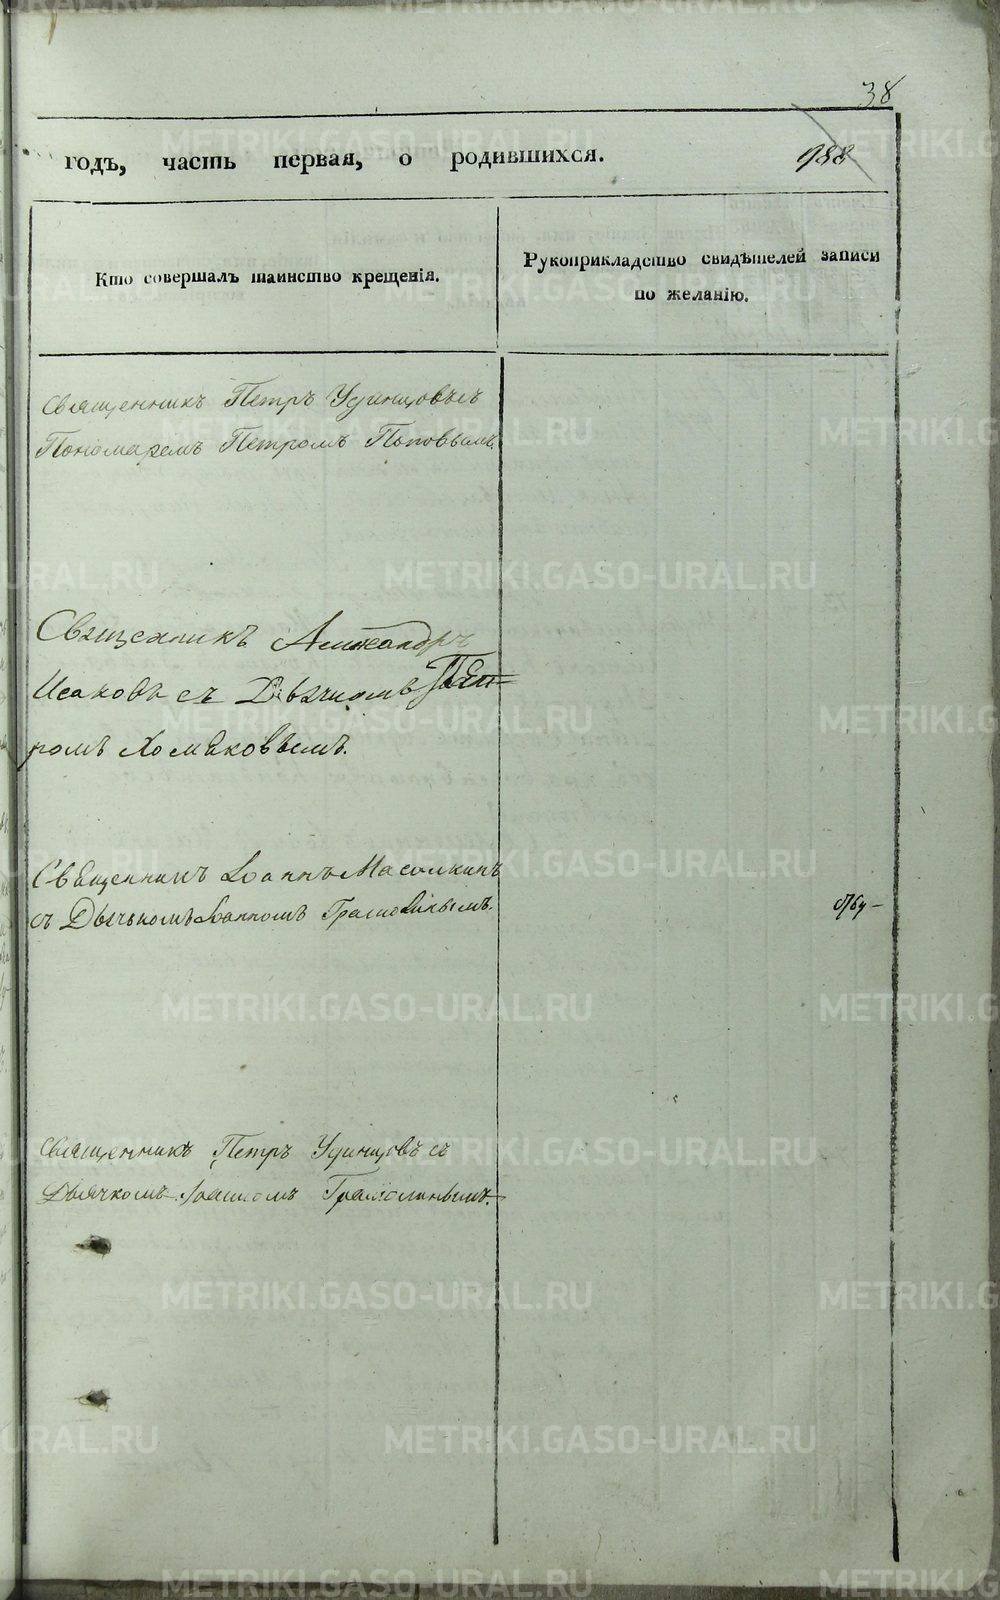 38
годъ, часть первая, о родившихся.
988
Кто совершалъ таинство крещенія.
Рукоприкладство свидѣтелей записи
по желанію.
Священникъ Петръ Удинцовъ съ
Пономаремъ Петромъ Поповымъ.
Священникъ Александръ
Исаковъ съ Дьячкомъ Пет-
ромъ Хомяковымъ.
Священникъ Іоаннъ Масолкинъ
съ Дьячькомъ Іоанномъ
Священникъ Петръ Удинцовъ съ
Дьячкомъ Іоанномъ
METRIKI.GASO-URAL.RU